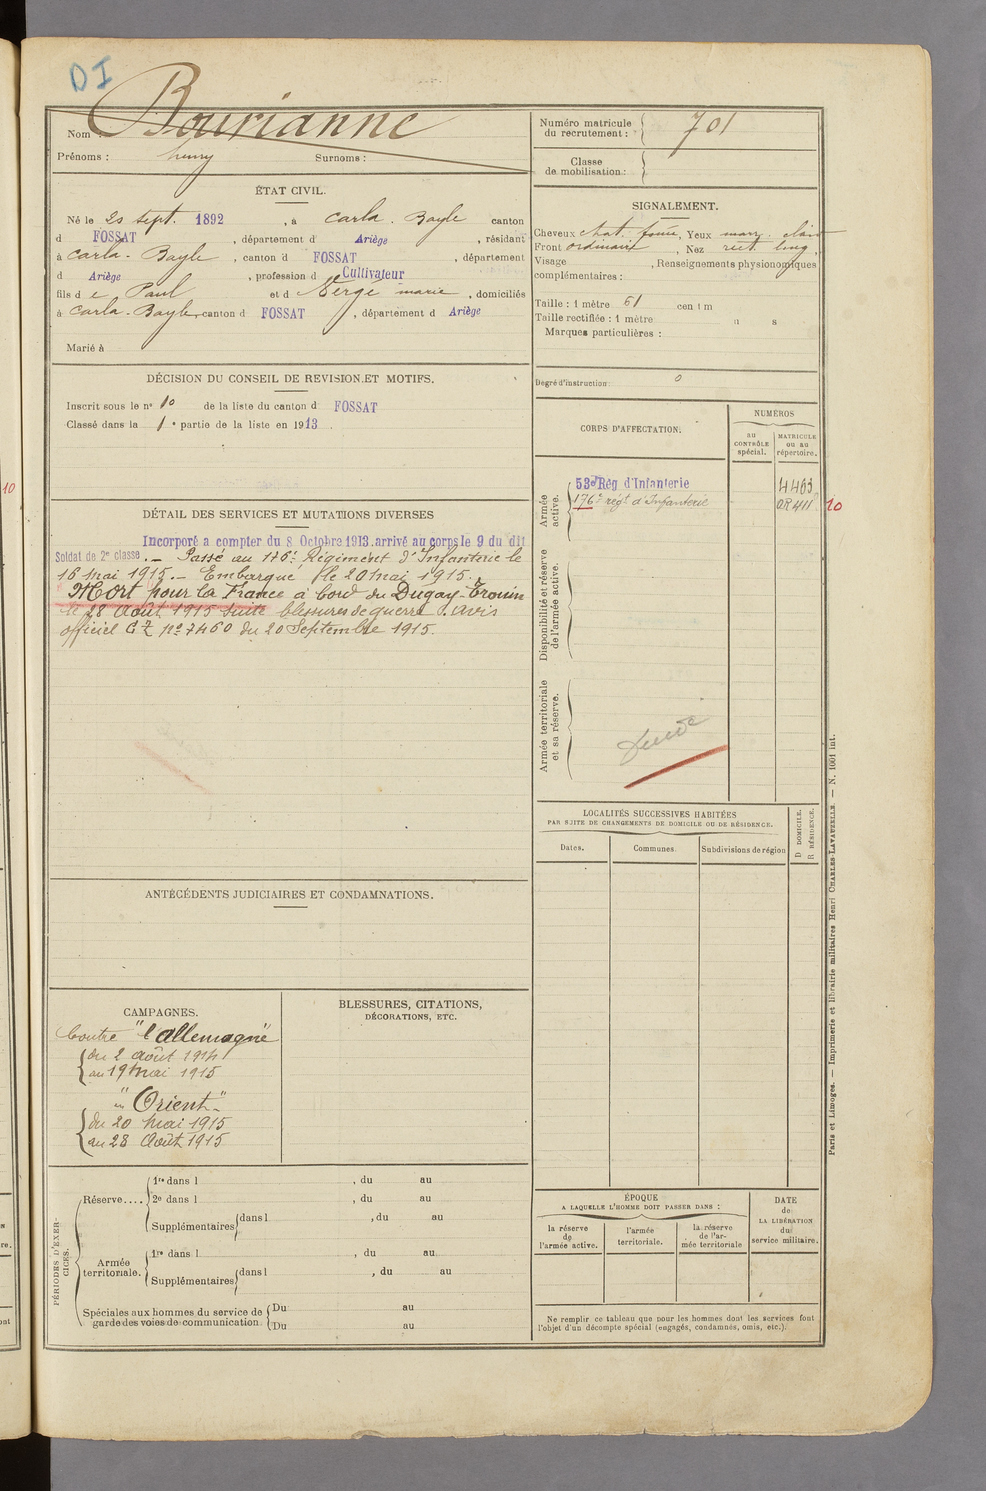 DI
Nom : Bourianne
Prénoms : henry Surnoms :
ÉTAT CIVIL.
Né le 20 sept. 1892, à Carla. Bayle canton
d FOSSAT, département d' Ariège, résidant
à Carla. Bayle, canton d FOSSAT, département
d Ariège, profession d Cultivateur
fils d e Paul et d Nergé marie, domiciliés
à Carla. Bayle, canton d FOSSAT, département d Ariège
Marié à
DÉCISION DU CONSEIL DE REVISION ET MOTIFS.
Inscrit sous le n° 10 de la liste du canton d FOSSAT
Classé dans la 1e partie de la liste en 1913.
DÉTAIL DES SERVICES ET MUTATIONS DIVERSES
Incorporé a compter du 8 Octobre 1913. arrivé au corps le 9 du dit
Soldat de 2e classe. — Passé au 176e Régiment d'Infanterie le
16 mai 1915. — Embarqué le 20 mai 1915.
Mort pour la France à bord du Dugay-Trouin
le 28 Août 1915 suite blessures de guerre. avis
officiel n° 7460 du 20 Septembre 1915.
ANTÉCÉDENTS JUDICIAIRES ET CONDAMNATIONS.
CAMPAGNES.
Contre "l'allemagne"
du 2 août 1914
au 19 mai 1915
"en Orient"
du 20 mai 1915
au 28 Août 1915
BLESSURES, CITATIONS,
DÉCORATIONS, ETC.
PÉRIODES D'EXERCICES.
Réserve....
1re dans l , du au
2e dans l , du au
Supplémentaires dans l , du au
Armée territoriale.
1re dans l , du au
Supplémentaires dans l , du au
Spéciales aux hommes du service de
garde des voies de communication.
Du au
Du au
Numéro matricule
du recrutement : 701
Classe
de mobilisation :
SIGNALEMENT.
Cheveux chat. foncé, Yeux marr. clair
Front ordinaire, Nez rect. long,
Visage , Renseignements physionomiques
complémentaires :
Taille : 1 mètre 61 centim
Taille rectifiée : 1 mètre
Marques particulières :
Degré d'instruction : 0
CORPS D'AFFECTATION.
NUMÉROS
au
CONTRÔLE
spécial.
MATRICULE
ou au
répertoire.
Armée
active.
53e Rég d'Infanterie 4463
176e régt d'Infanterie OR 411 10
Disponibilité et réserve
de l'armée active.
Armée territoriale
et sa réserve.
LOCALITÉS SUCCESSIVES HABITÉES
PAR SUITE DE CHANGEMENTS DE DOMICILE OU DE RÉSIDENCE.
Dates. Communes. Subdivisions de région
D DOMICILE.
R RÉSIDENCE.
ÉPOQUE
A LAQUELLE L'HOMME DOIT PASSER DANS :
la réserve
de
l'armée active.
l'armée
territoriale.
la réserve
de l'ar-
mée territoriale
DATE
de
LA LIBÉRATION
du
service militaire.
Ne remplir ce tableau que pour les hommes dont les services font
l'objet d'un décompte spécial (engagés, condamnés, omis, etc.).
Paris et Limoges. — Imprimerie et librairie militaires Henri CHARLES-LAVAUZELLE. — N. 1001 int.
10